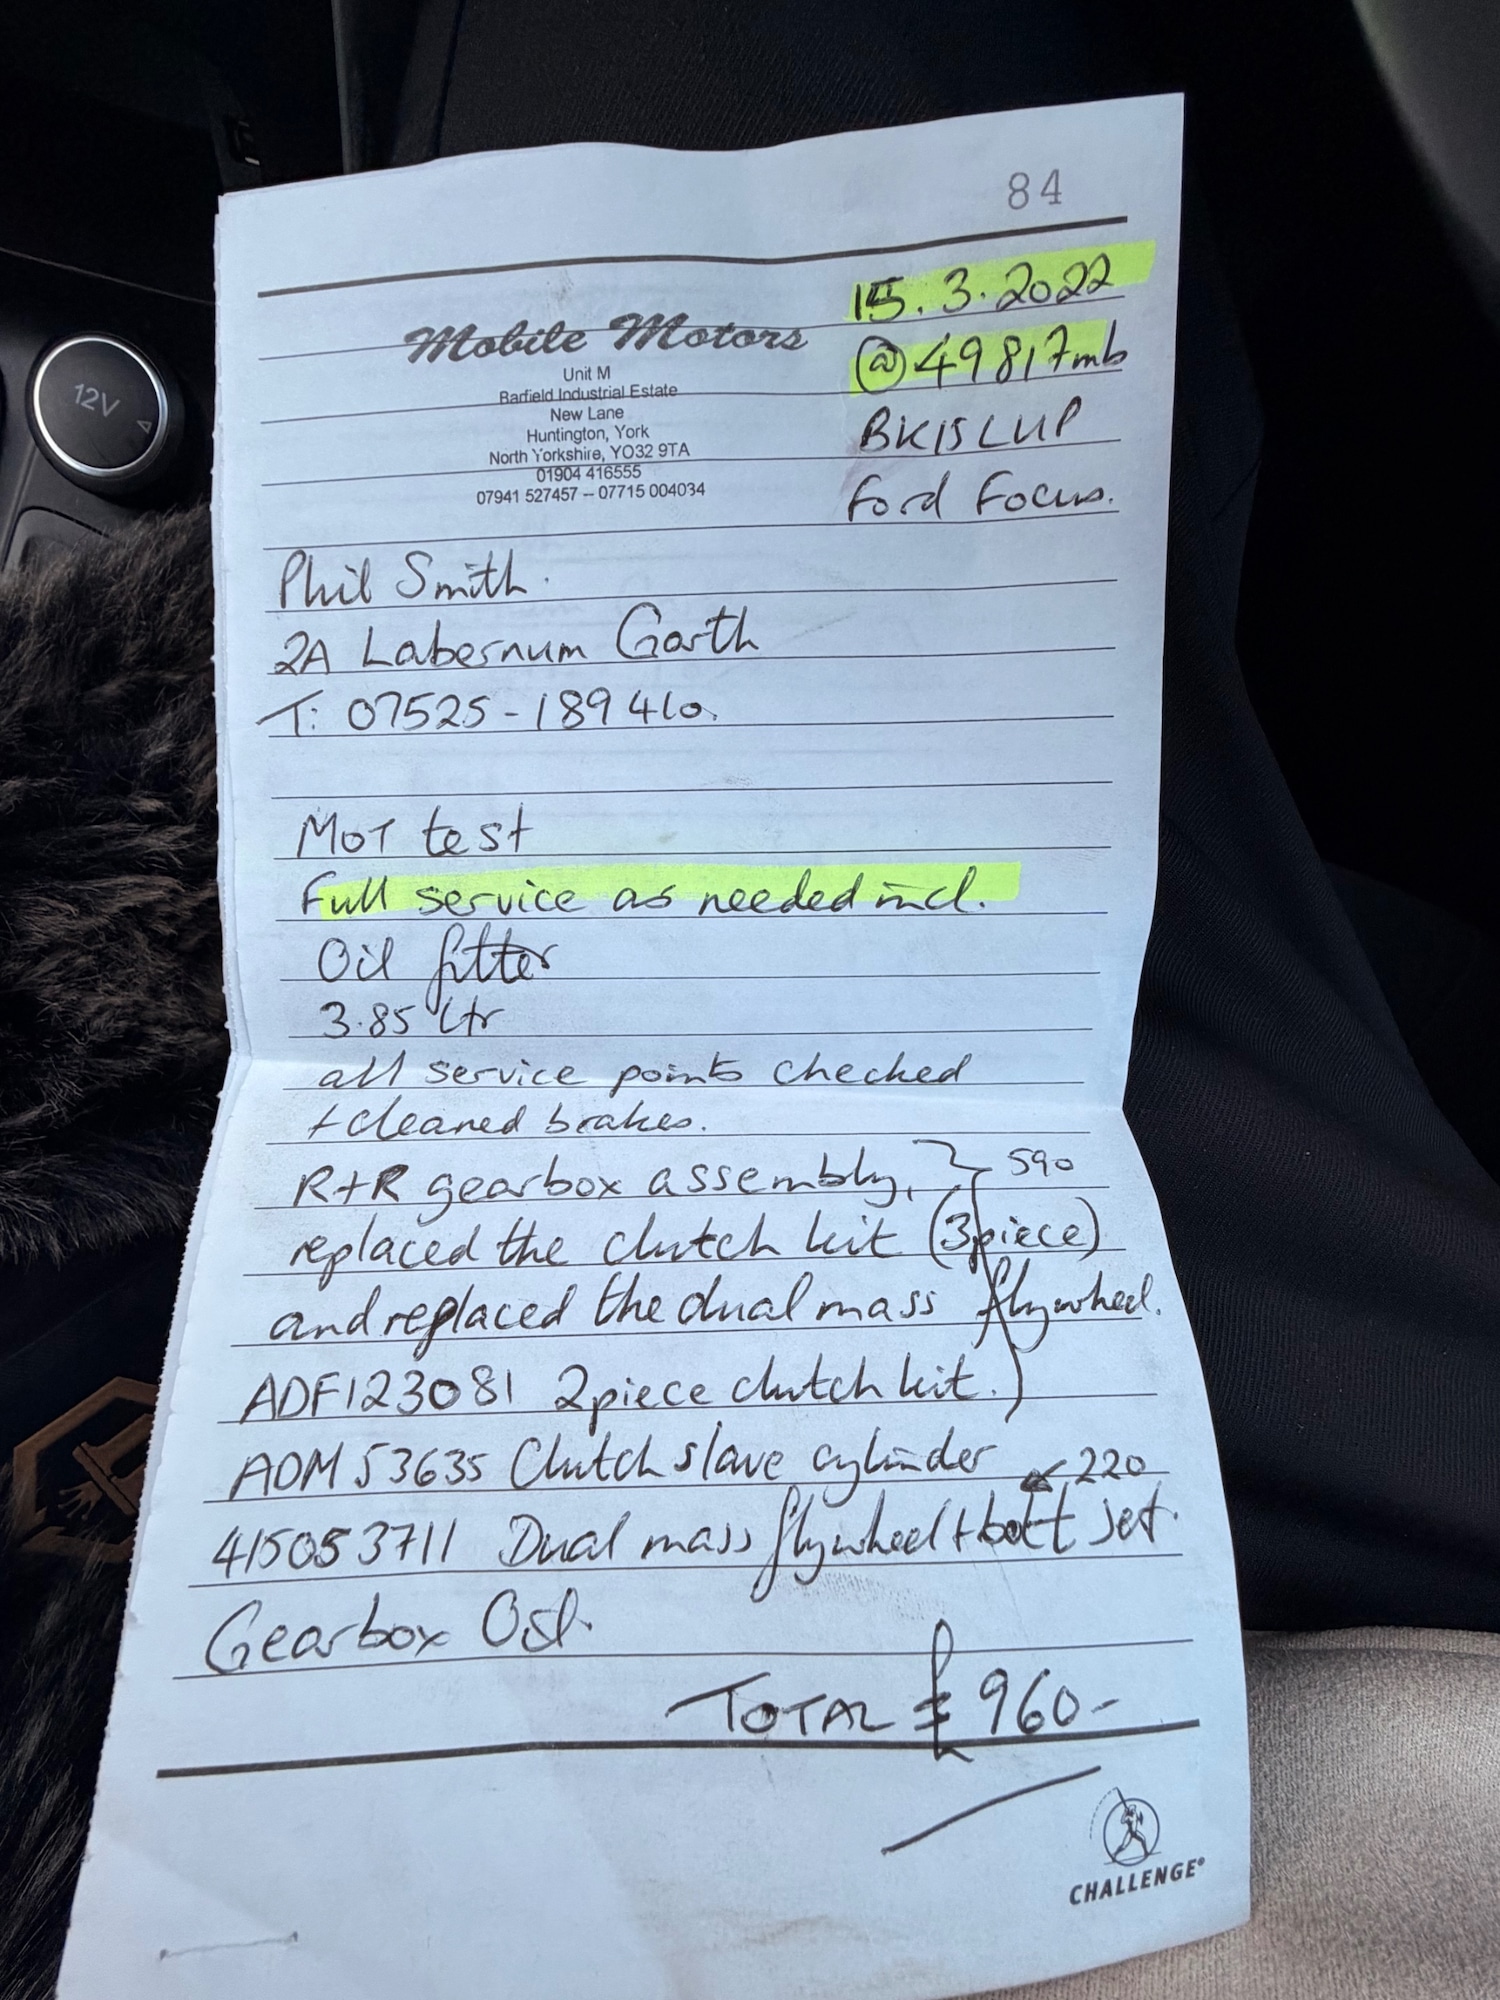 12V
84
15.3.2022
@49817mls
BK15LUP
Ford Focus.
Mobile Motors
Unit M
Barfield Industrial Estate
New Lane
Huntington, York
North Yorkshire, YO32 9TA
01904 416555
07941 527457 – 07715 004034
Phil Smith.
2A Labernum Garth
T: 07525-189410.
MOT test
Full service as needed incl.
Oil filter
3.85 ltr
all service points checked
+cleaned brakes.
R+R gearbox assembly, 590
replaced the clutch kit (3piece)
and replaced the dual mass flywheel.
ADF123081 2piece clutch kit.
ADM53635 Clutch slave cylinder
220
415053711 Dual mass flywheel+bolt set.
Gearbox Oil.
TOTAL £960-
CHALLENGE®